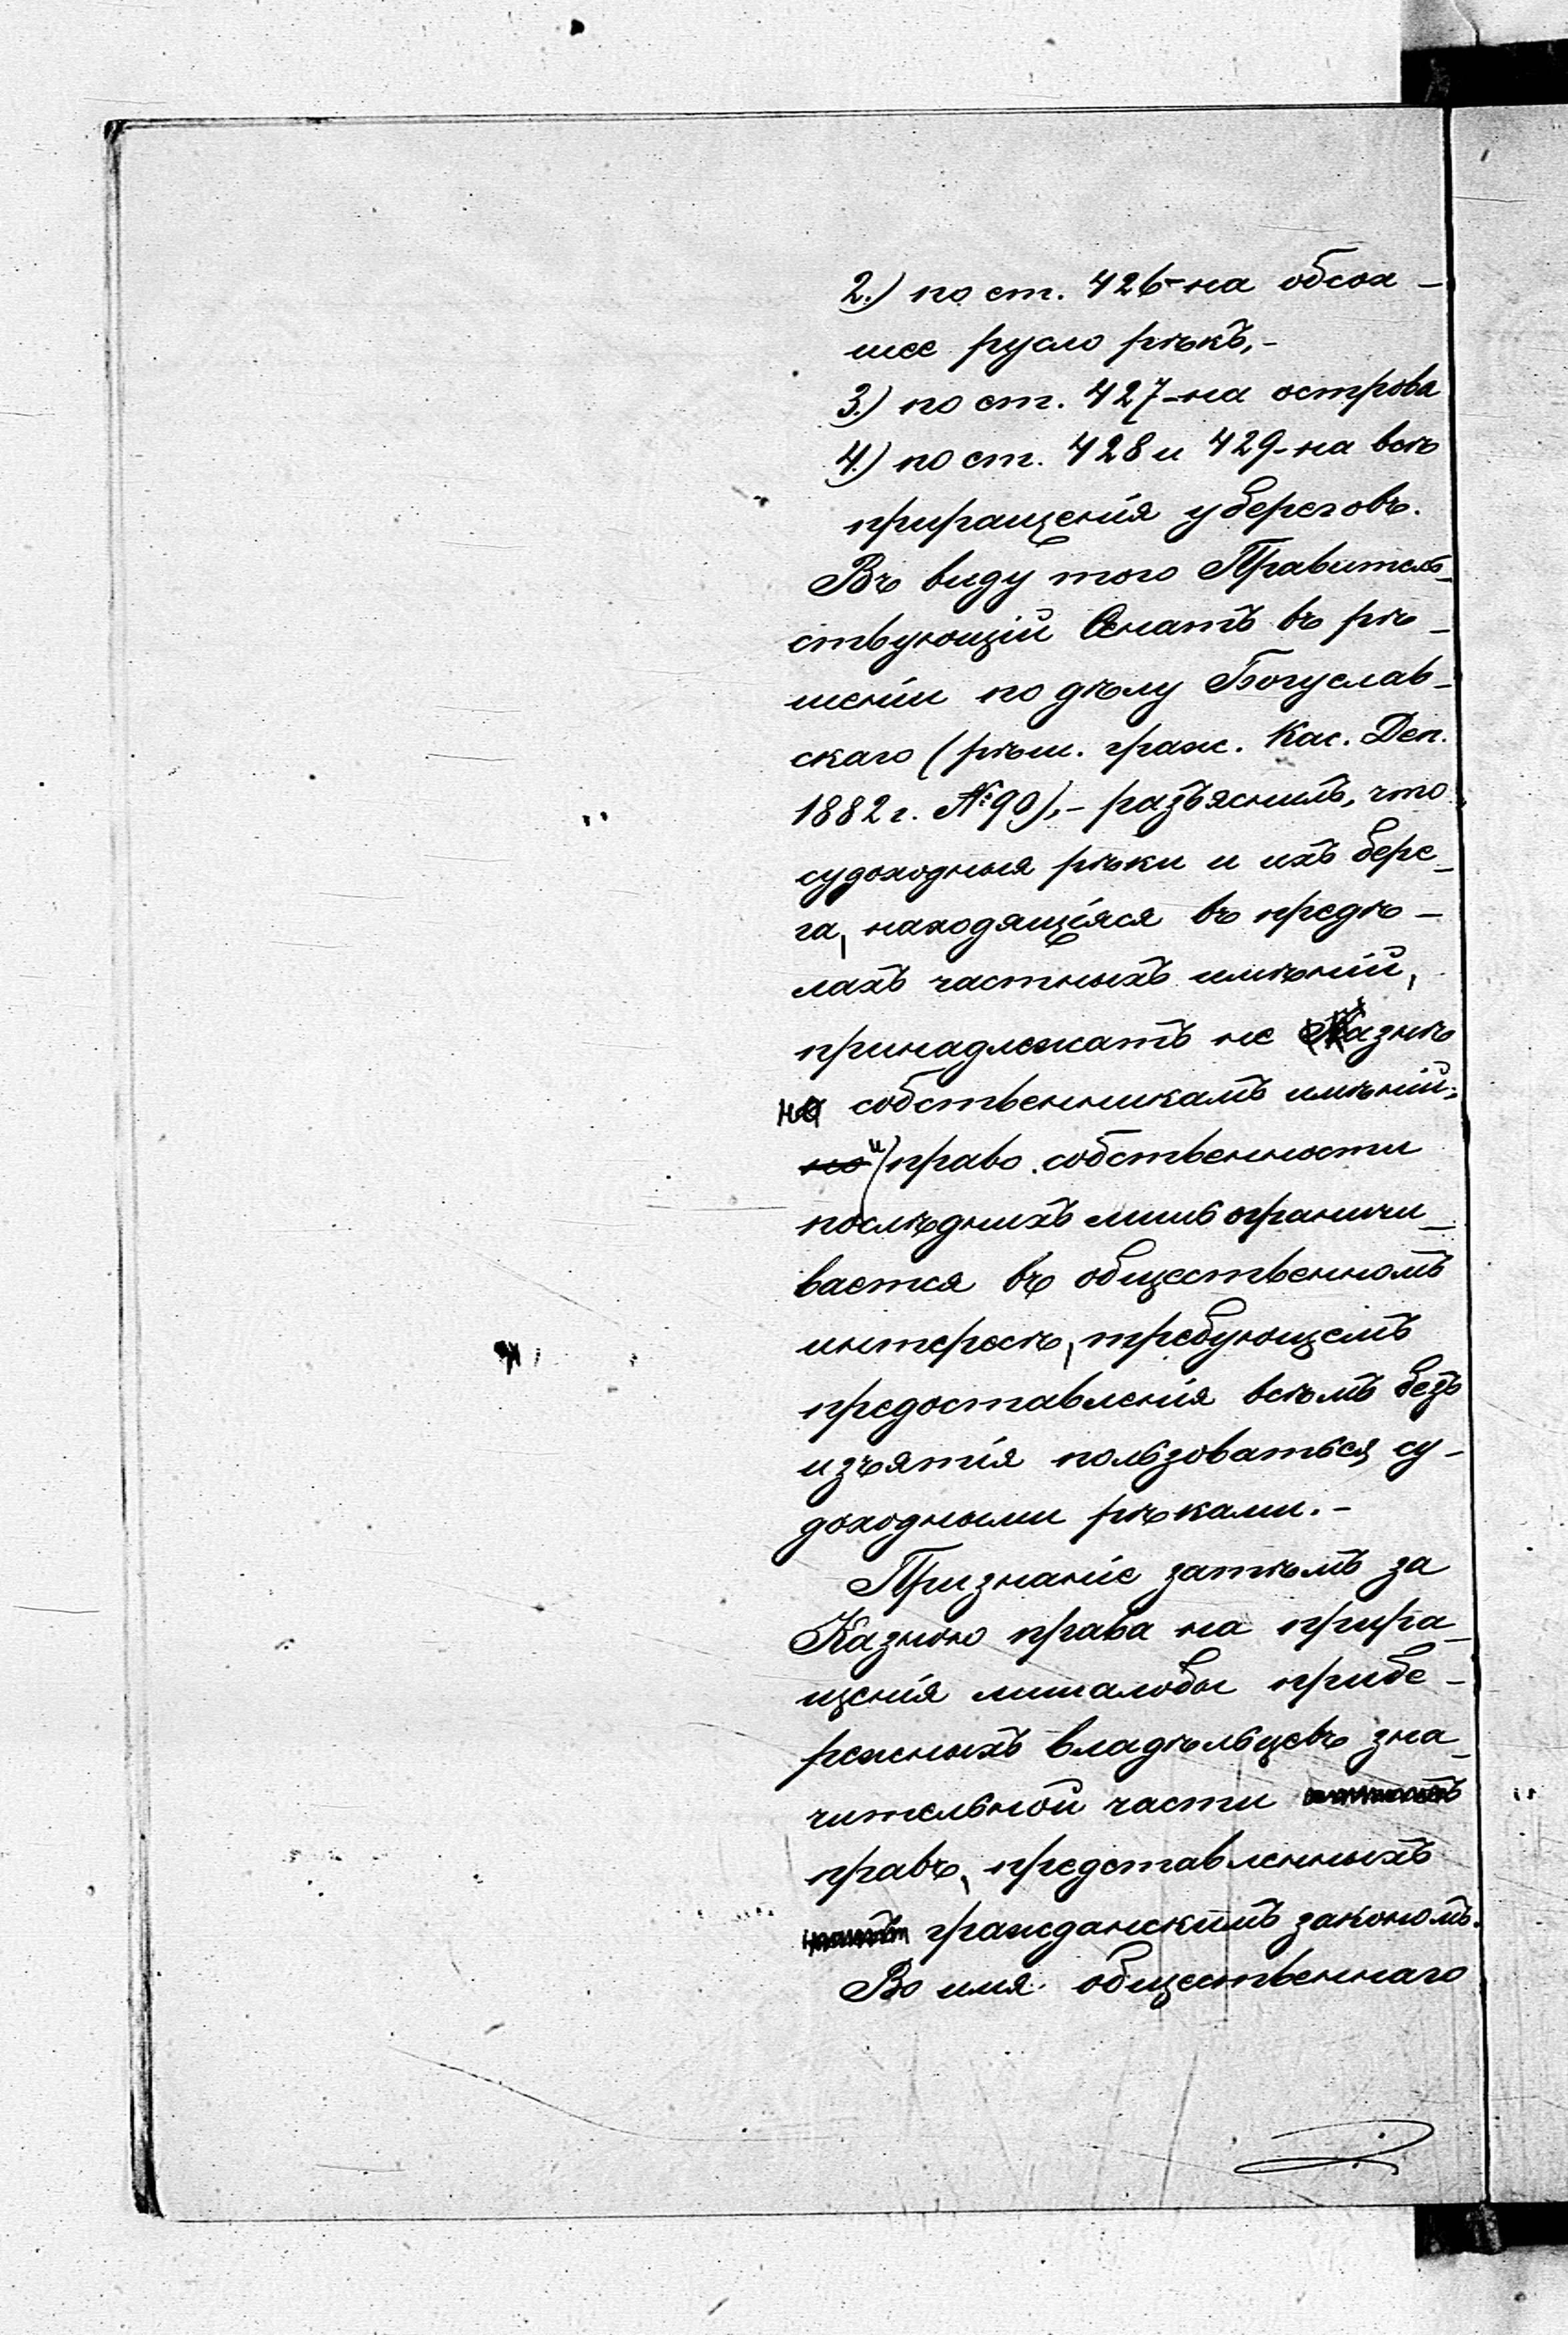 2.) по ст. 426-на обсох-
шее русло рѣкъ,-
3.) по ст. 427-на острова
4.) по ст. 428 и 429-на всѣ
приращенія у береговъ.
Въ виду того Правитель-
ствующій Сенатъ въ рѣ-
шеніи по дѣлу Богуслав-
скаго (рѣш. граж. Кас. Деп.
1882 г. №90),- разъяснилъ, что
судоходныя рѣки и ихъ бере-
га, находящіяся въ предѣ-
лахъ частныхъ имѣній,
принадлежатъ не Казнѣ
но собственникамъ имѣній;
но и право собственности
послѣднихъ лишь ограничи-
вается въ общественномъ
интересѣ, требующемъ
предоставленія всѣмъ безъ
изъятія пользоваться су-
доходными рѣками.-
Признаніе затѣмъ за
Казною права на прира-
щенія лишалобы прибе-
режныхъ владѣльцевъ зна-
чительной части
правъ, представленныхъ
гражданскимъ закономъ.
Во имя общественнаго